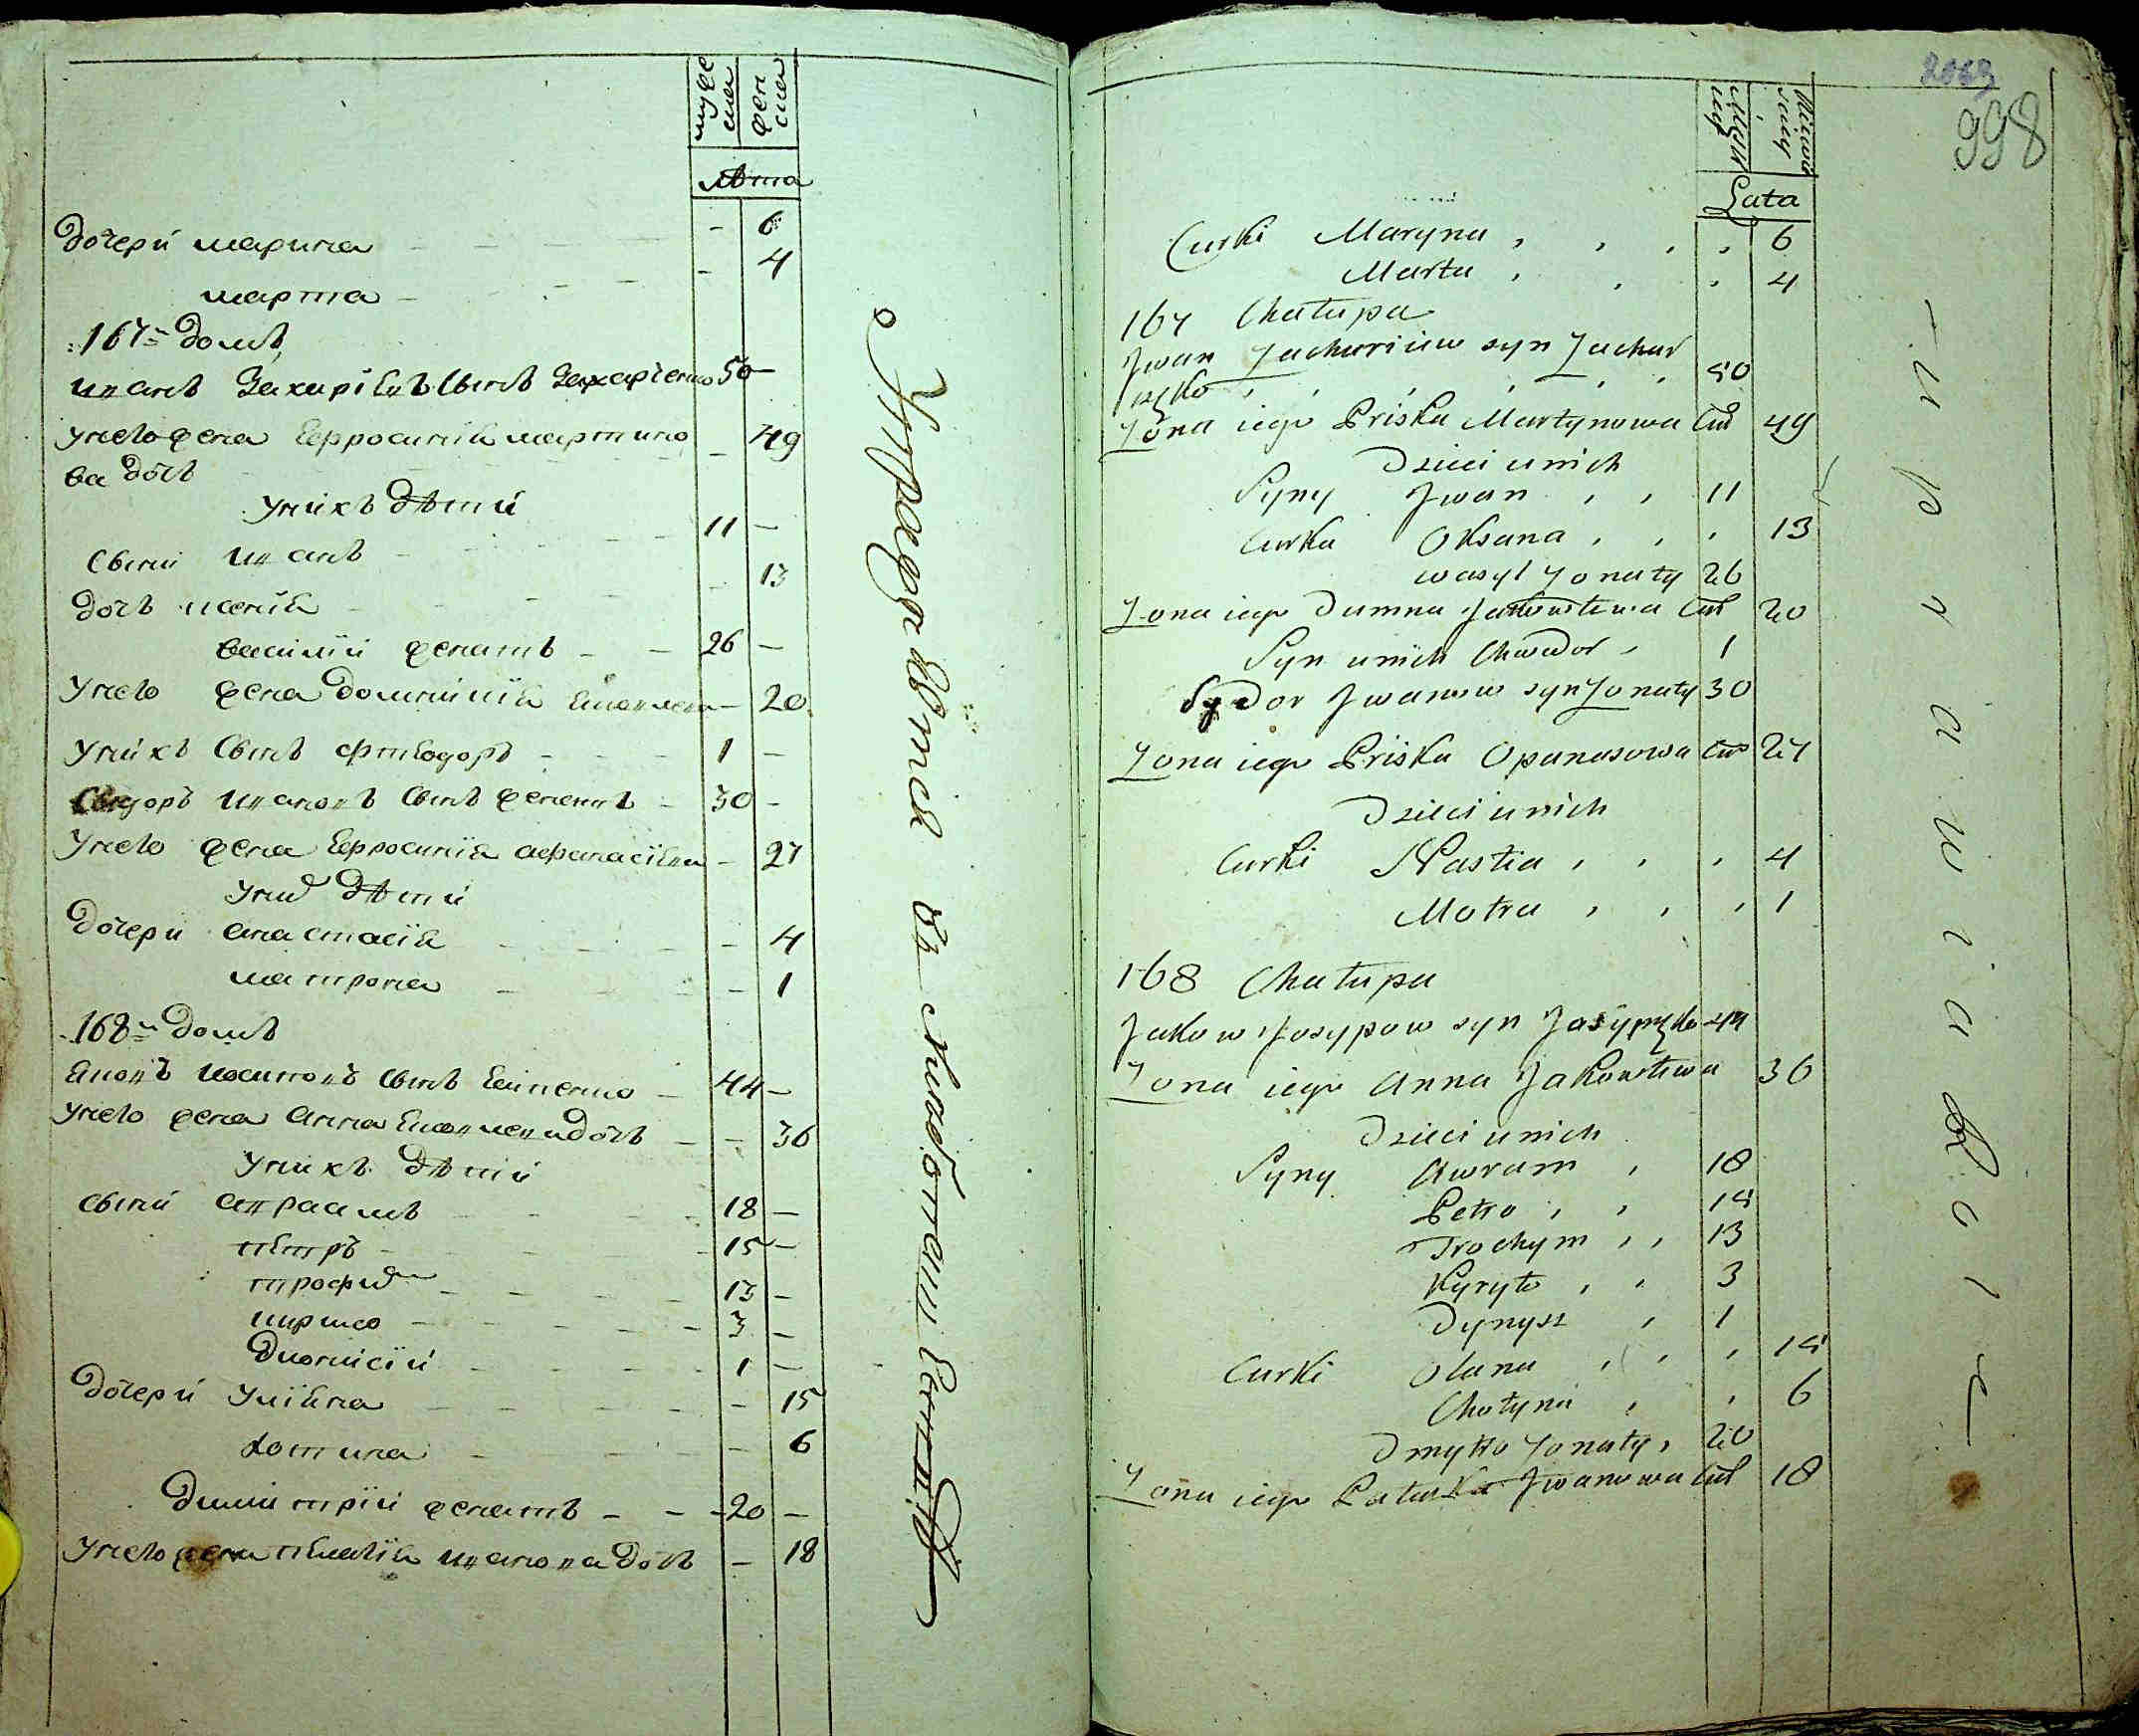 муже
ска
жен
ска
лѣта
дочери марина - 6
марта - 4
167й домъ
иванъ Захаріевъ сынъ Захарченко 50 -
унего жена Ефросинія мартино - 49
ва дочь
унихъ дѣти
сыни иванъ 11 -
дочь ксенія - 13
василий женатъ 26 -
унего жена домникія яковлева - 20
унихъ сынъ фтеодоръ 1 -
Сидоръ ивановъ сынъ женатъ 30 -
унего жена Ефросинія афанасіева - 27
уних дѣти
дочери анастасія - 4
матрона - 1
168й домъ
яковъ иосиповъ сынъ 44 -
унего жена анна яковлева дочь - 36
унихъ дѣти
сыни авраамъ 18 -
петръ 15 -
трофим 13 -
кирило 3 -
дионисій 1 -
дочери уліяна - 15
хотина - 6
димитрій женатъ 20 -
унего жена пелагія иванова дочь - 18
Lata
998
Curki Maryna 6
Marta 4
167 Chałupa
Jwan Zachariiew syn Zachar
czko 50
Żona iego Priska Martynowa cur 49
Dzieci unich
Syny Jwan 11
Curka Oksana 13
wasyl Żonaty 26
Żona iego Dumna Jakowlewa cur 20
Syn unich Chwedor 1
Sydor Jwanow syn Żonaty 30
Żona iego Priska Opanasowa cur 27
Dzieci unich
Curki Nastia 4
Motra 1
168 Chałupa
Jakow Josypow syn Josypczko 44
Żona iego Anna Jakowlewa 36
Dzieci unich
Syny Awram 18
Petro 15
Trochym 13
Kyryło 3
Dynysz 1
Curki Olana 15
Chotyna 6
Dmytro Żonaty 20
Żona iego Palaszka Jwanowa cur 18